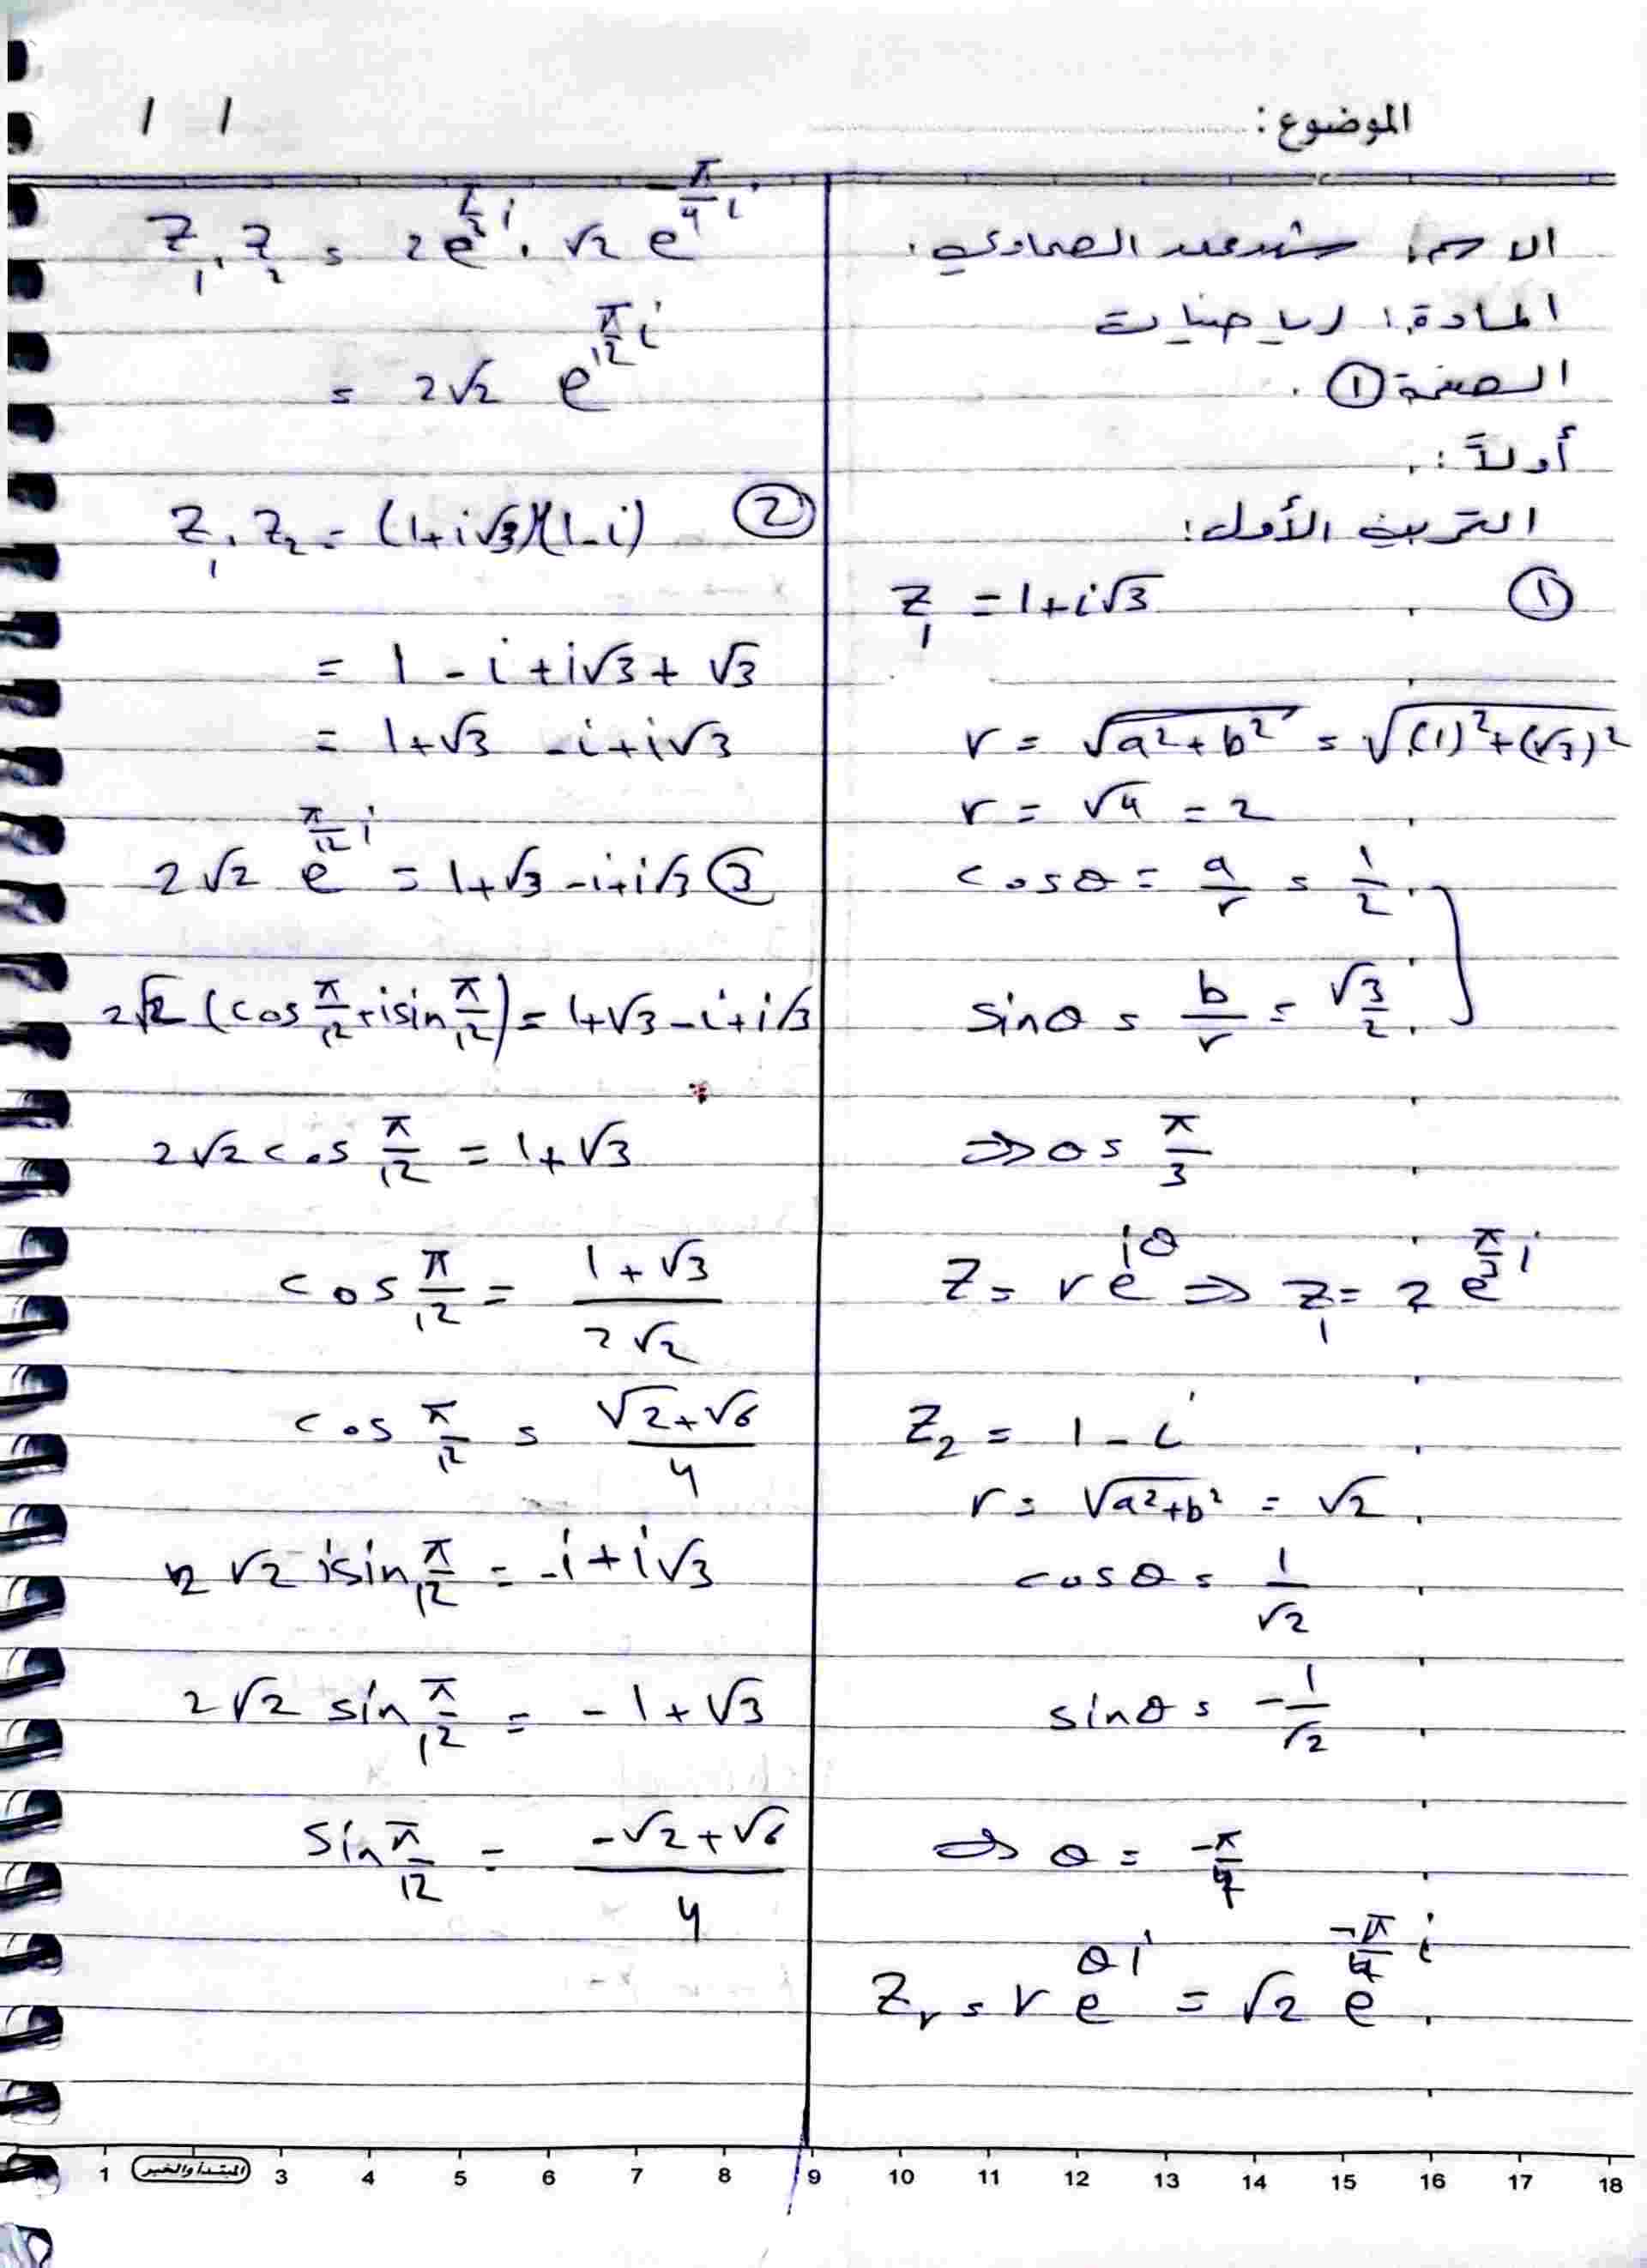 الموضوع:
/ /
الاسم: شهد محمد الصماوي.
المادة: رياضيات
الصفحة ①.
أولاً:
التمرين الأول:
① z₁ = 1+i√3
r = √(a²+b²) = √((1)²+(√3)²)
r = √4 = 2
cosθ = a/r = 1/2
sinθ = b/r = √3/2
⇒ θ = π/3
z = r e^(iθ) ⇒ z₁ = 2 e^(π/3 i)
z₂ = 1 - i
r = √(a²+b²) = √2
cosθ = 1/√2
sinθ = -1/√2
⇒ θ = -π/4
z₂ = r e^(θi) = √2 e^(-π/4 i)
z₁ . z₂ = 2e^(π/3 i) . √2 e^(-π/4 i)
= 2√2 e^(π/12 i)
② z₁ . z₂ = (1+i√3)(1-i)
= 1 - i + i√3 + √3
= 1+√3 - i + i√3
③ 2√2 e^(π/12 i) = 1+√3 - i + i√3
2√2 (cos π/12 + i sin π/12) = 1+√3 - i + i√3
2√2 cos π/12 = 1+√3
cos π/12 = (1+√3)/(2√2)
cos π/12 = (√2+√6)/4
2√2 i sin π/12 = -i + i√3
2√2 sin π/12 = -1+√3
sin π/12 = (-√2+√6)/4
1 المبتدأ والخبر 3 4 5 6 7 8 9 10 11 12 13 14 15 16 17 18